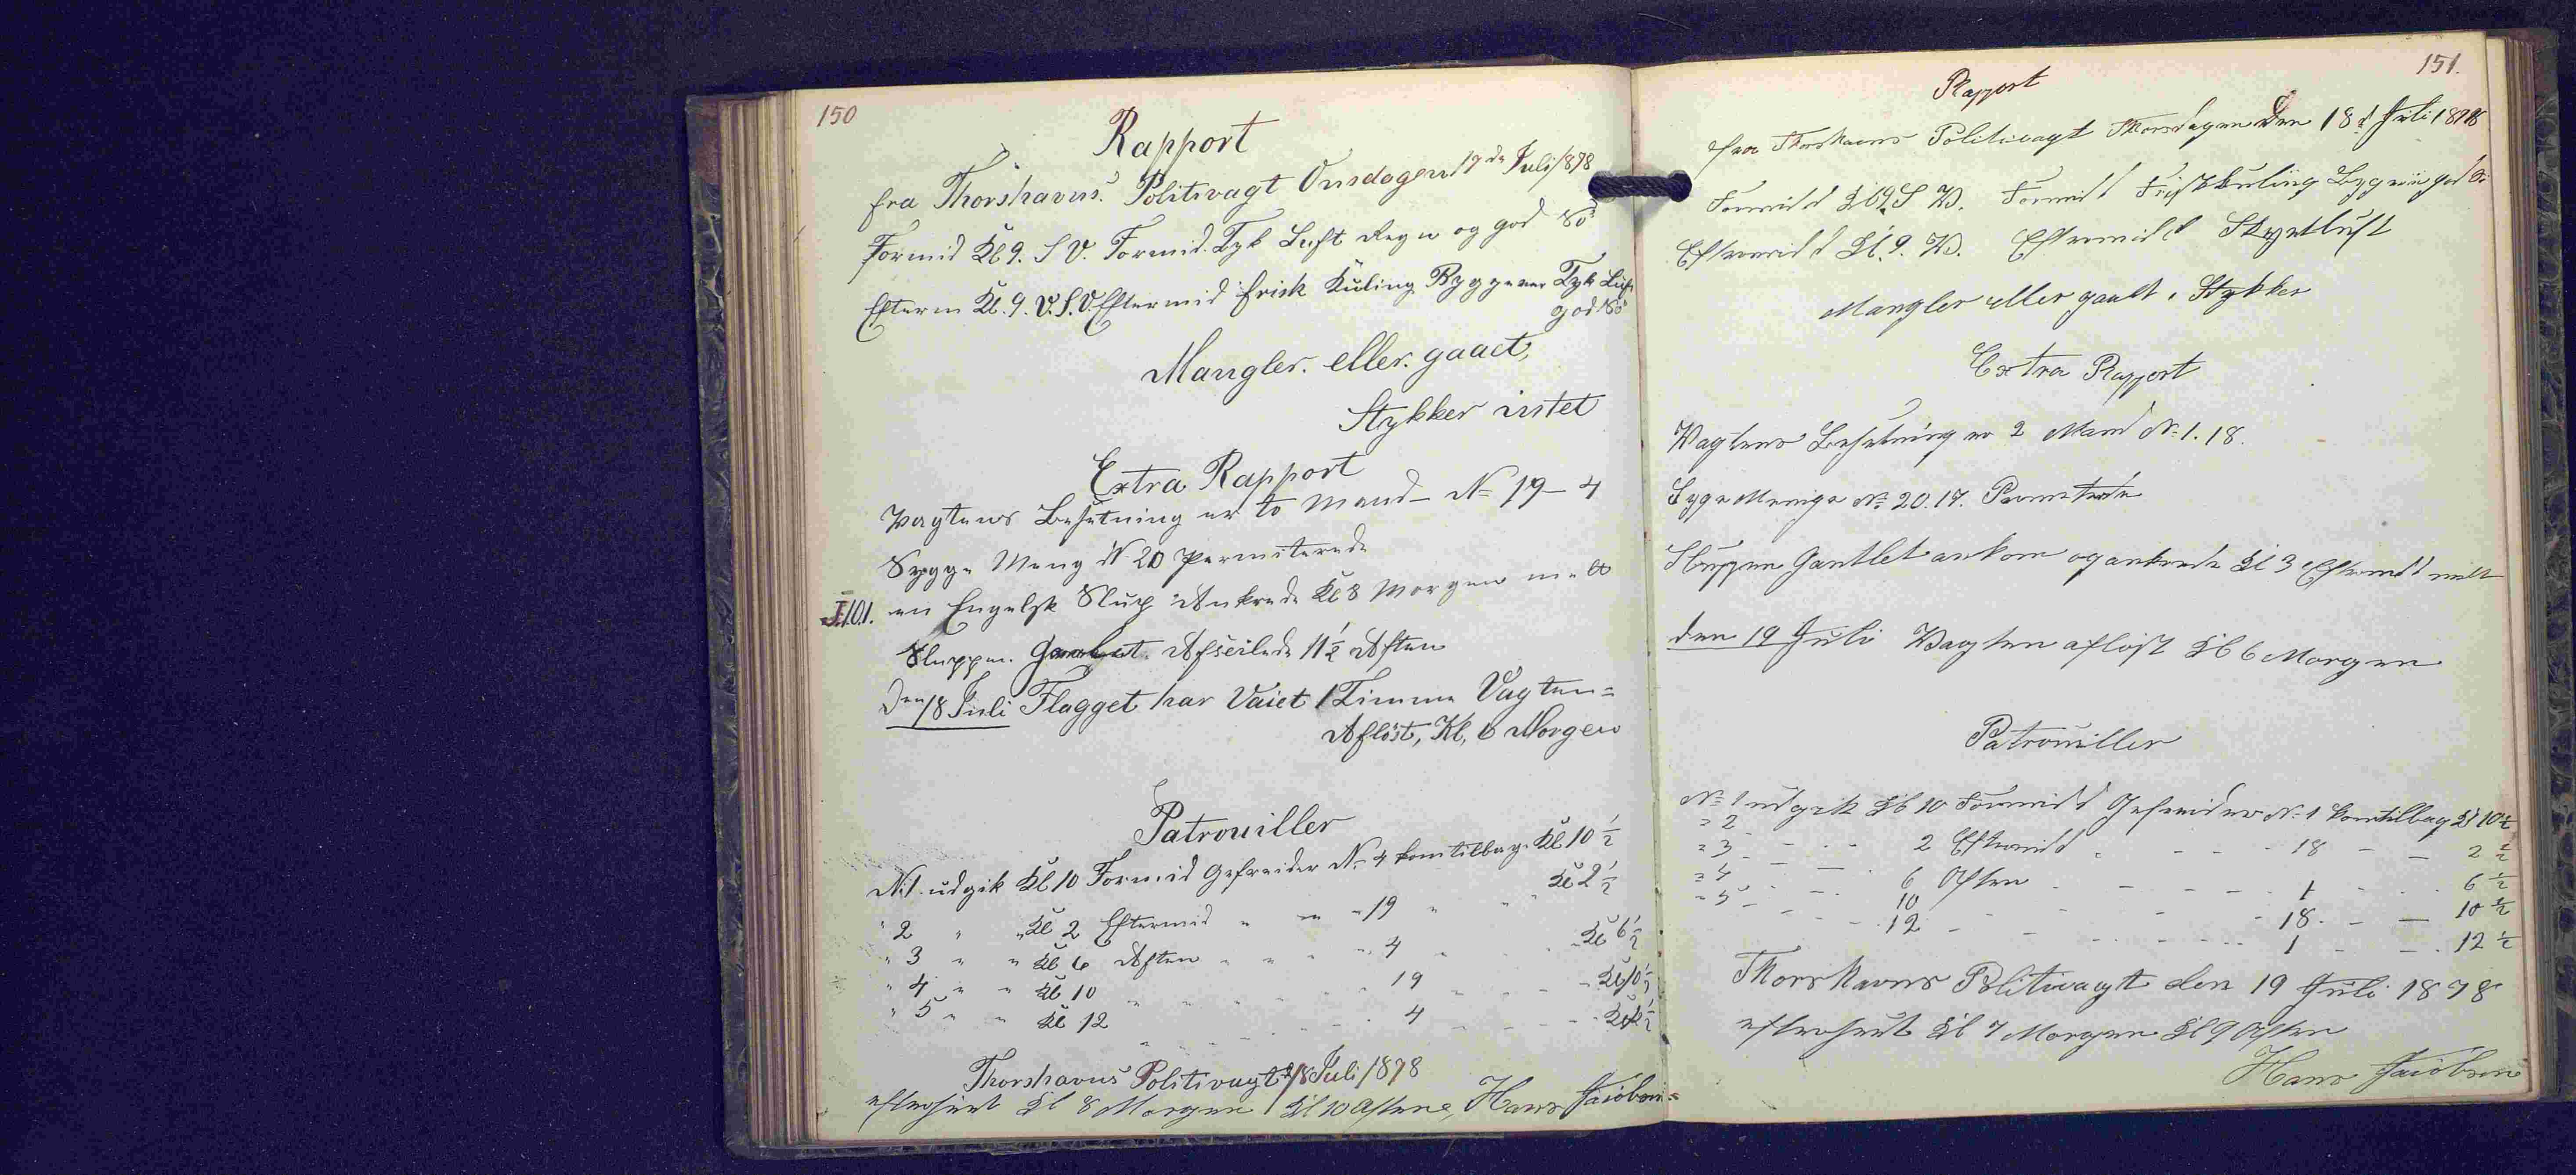 150
Rapport
fra Thorshavns. Politivagt Onsdagen 17de Juli 1878
Formid Kl 9. S V. Formid. Tyk Luft Regn og god Sö
Efterm Kl. 9. V.S.V. Eftermid frisk Kuling Byggever Tyk Luft
god Sö
Mangler. eller. gaaet,
Stykker intet
Extra Rapport
Vagtens Besetning er to Mand - No 19 - 4
Sygge Meng No 20 Permiterede
J.101. en Engelsk Slup Ankrede Kl 8 Morgen
Sluppen. Afseilede 11 1/2 Aften
Den 18 Juli Flagget har Vaiet 1 Timme Vagten =
Aflöst, Kl, 6 Morgen
Patrouiller
No 1. udgik Kl 10 Formid Gefreider No 4 kom tilbage Kl 10 1/2
" 2 " " Kl 2 Eftermid " " " 19 " " Kl 2 1/2
" 3 " " Kl 6 Aften " " " 4 " " Kl 6 1/2
" 4 " " Kl 10 " " " 19 " " Kl 10 1/2
" 5 " " Kl 12 " " " 4 " " Kl 12 1/2
Thorshavns Politivagt d 18 Juli 1878
efterseet Kl 8 Morgen Kl 10 Aftene, Hans Jacobsen =
151.
Rapport
fra Thorshavns Politivagt Thorsdagen Den 18d Juli 1878
Formidd Kl 9 S V. Formidd Frisk Kuling god Sö
Eftermidd Kl. 9. V. Eftermidd Skyetluft
Mangler eller gaaet i Stykker
Extra Rapport
Vagtens Besetning er 2 Mand No 1. 18.
Syge Menige No 20. 17. Permiterede
Sluppen Gantlet ankom og ankrede Kl 3 Eftermidd
den 19 Juli Vagten aflöst Kl 6 Morgen
Patrouiller
No 1 udgik Kl 10 Formidd Gefreider No 1 kom tilbag Kl 10 1/2
" 2 - - 2 Eftermidd - - - 18 - - 2 1/2
" 3 - - 6 Aften - - - 1 - - 6 1/2
" 4 - - 10 - - - 18 - - 10 1/2
" 5 - - 12 - - - 1 - - 12 1/2
Thorshavns Politivagt den 19 Juli 1878
efterseet Kl 7 Morgen Kl 9 Aften
Hans Jacobsen